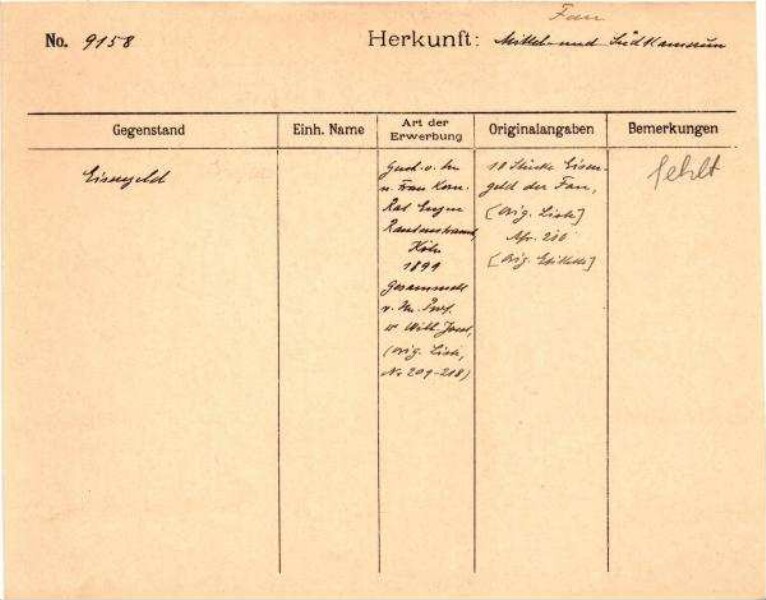 Fan
No. 9158 Herkunft: Mittel- und Südkamerun
Gegenstand
Einh. Name
Art der
Erwerbung
Originalangaben
Bemerkungen
Eisengeld
Gesch. v. Hn
u. Frau Kom.
Rat Eugen
Rautenstrauch,
Köln
1899
Gesammelt
v. Hn. Prof.
Wilh. Joest,
(orig. Liste,
No 209-218)
10 Stücke Eisen-
geld der Fan,
[Orig. Liste]
Afr. 210
[Orig. Etikette]
fehlt